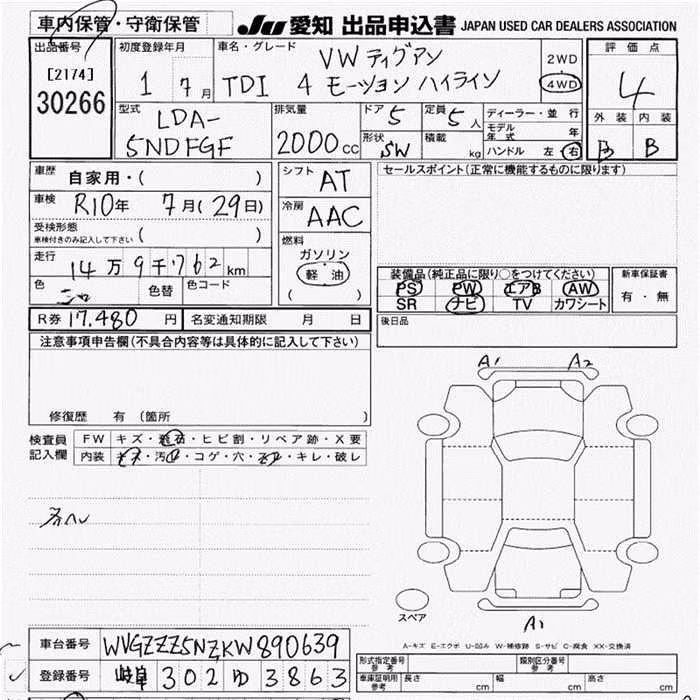 車内保管・守衛保管
JU 愛知 出品申込書 JAPAN USED CAR DEALERS ASSOCIATION
出品番号
[2174]
30266
初度登録年月
1 7月
車名・グレード
VW ティグアン
TDI 4モーション ハイライン
2WD
4WD
評価点
4
外装 内装
B B
型式
LDA-
5NDFGF
排気量
2000cc
ドア 5
定員 5人
形状 SW
積載 kg
ディーラー・並行
モデル年式 年
ハンドル 左 右
車歴 自家用・( )
車検 R10年 7月(29日)
受検形態
車検付きのみ記入して下さい ( )
走行 14万9千762km
色 色替 色コード
シフト AT
冷房 AAC
燃料
ガソリン
軽油
( )
セールスポイント(正常に機能するものに限ります)
装備品(純正品に限り○をつけてください)
PS PW エアB AW
SR ナビ TV カワシート
新車保証書
有・無
後日品
R券 17,480円 名変通知期限 月 日
注意事項申告欄(不具合内容等は具体的に記入して下さい)
修復歴 有 (箇所 )
検査員記入欄
FW キズ・飛石・ヒビ割・リペア跡・X要
内装 キズ・汚レ・コゲ・穴・スレ・キレ・破レ
A1 A2
スペア
A1
A-キズ E-エクボ U-凹み W-補修跡 S-サビ C-腐食 XX-交換済
車台番号 WVGZZZ5NZKW890639
登録番号 岐阜 302 ゆ 3863
形式指定番号 参考
類別区分番号 参考
車庫証明用 参考 長さ cm 幅 cm 高さ cm